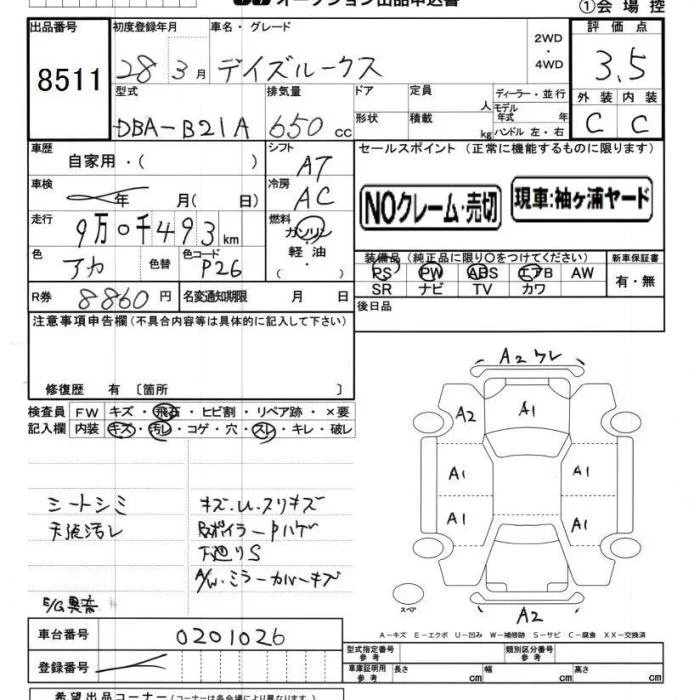 オークション出品申込書
①会場控
出品番号 初度登録年月 車名・グレード 2WD・4WD 評価点
8511 28年3月 デイズルークス 3.5
型式 排気量 ドア 定員 人 ディーラー・並行 外装 内装
DBA-B21A 650cc 形状 積載 kg モデル年式 年 ハンドル 左・右 C C
車歴 自家用・( ) シフト AT セールスポイント (正常に機能するものに限ります)
車検 年 月( 日) 冷房 AC NOクレーム・売切 現車:袖ヶ浦ヤード
走行 9万0千493km 燃料 ガソリン・軽油・( )
色 アカ 色替 色コード P26
装備品 (純正品に限り○をつけてください) 新車保証書
PS PW ABS エアB AW 有・無
SR ナビ TV カワ
R券 8860円 名変通知期限 月 日 後日品
注意事項申告欄 (不具合内容等は具体的に記入して下さい)
修復歴 有 〔箇所 〕
検査員 FW キズ・飛石・ヒビ割・リペア跡・×要
記入欄 内装 キズ・汚レ・コゲ・穴・スレ・キレ・破レ
シートシミ キズ・U・スリキズ
天張汚レ Rスポイラー Pハゲ
下廻りS
A/W・ミラーカバーキズ
E/G異音
A2 ワレ
A2 A1
A1 A1
A1 A1
A2
スペア
A-キズ E-エクボ U-凹み W-補修跡 S-サビ C-腐食 XX-交換済
車台番号 0201026
登録番号
型式指定番号 参考 類別区分番号 参考
車庫証明用 参考 長さ cm 幅 cm 高さ cm
希望出品コーナー(コーナーは各会場により異なります)